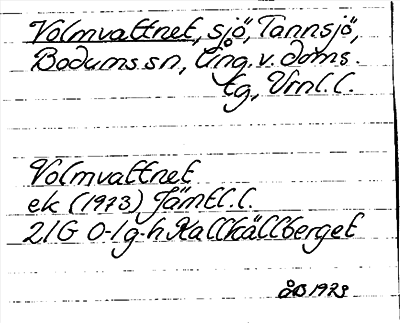 Volmvattnet, sjö, Tannsjö,
Bodums sn, Ång. v. doms.
tg, Vrnl. l.
Volmvattnet
ek (1973) Jämtl. l.
21G 0-1g-h Kallkällberget
ÅB 1973